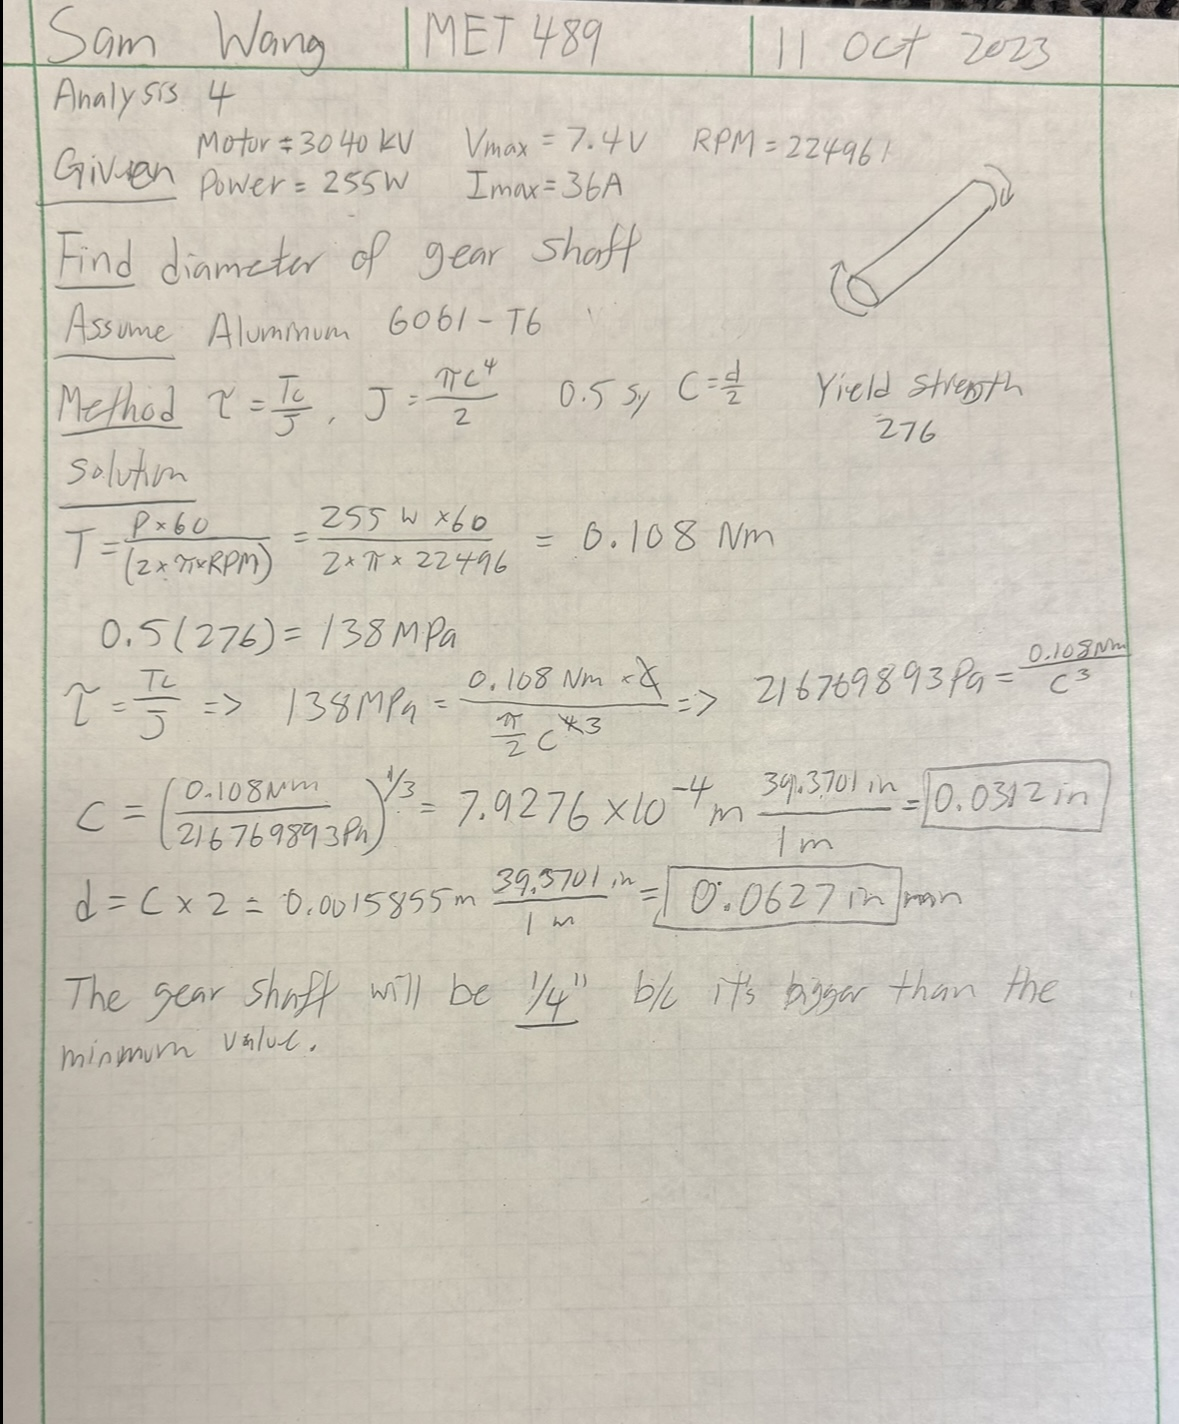 Sam Wang | MET 489 | 11 Oct 2023
Analysis 4
Given Motor = 3040 kV Vmax = 7.4V RPM = 22496
Power = 255W Imax = 36A
Find diameter of gear shaft
Assume Aluminum 6061-T6
Method τ = Tc/J, J = πc⁴/2 0.5 Sy C = d/2 Yield Strength
276
Solution
T = P×60/(2×π×RPM) = 255 W ×60/2×π×22496 = 0.108 Nm
0.5(276) = 138 MPa
τ = Tc/J => 138MPa = 0.108 Nm × c/(π/2 c⁴ 3) => 216769893Pa = 0.108Nm/C³
C = (0.108Nm/216769893Pa)^1/3 = 7.9276 ×10⁻⁴ m 39.3701 in/1 m = 0.0312 in
d = C × 2 = 0.0015855m 39.3701 in/1 m = 0.0627 in min
The gear shaft will be 1/4" b/c it's bigger than the
minimum value.